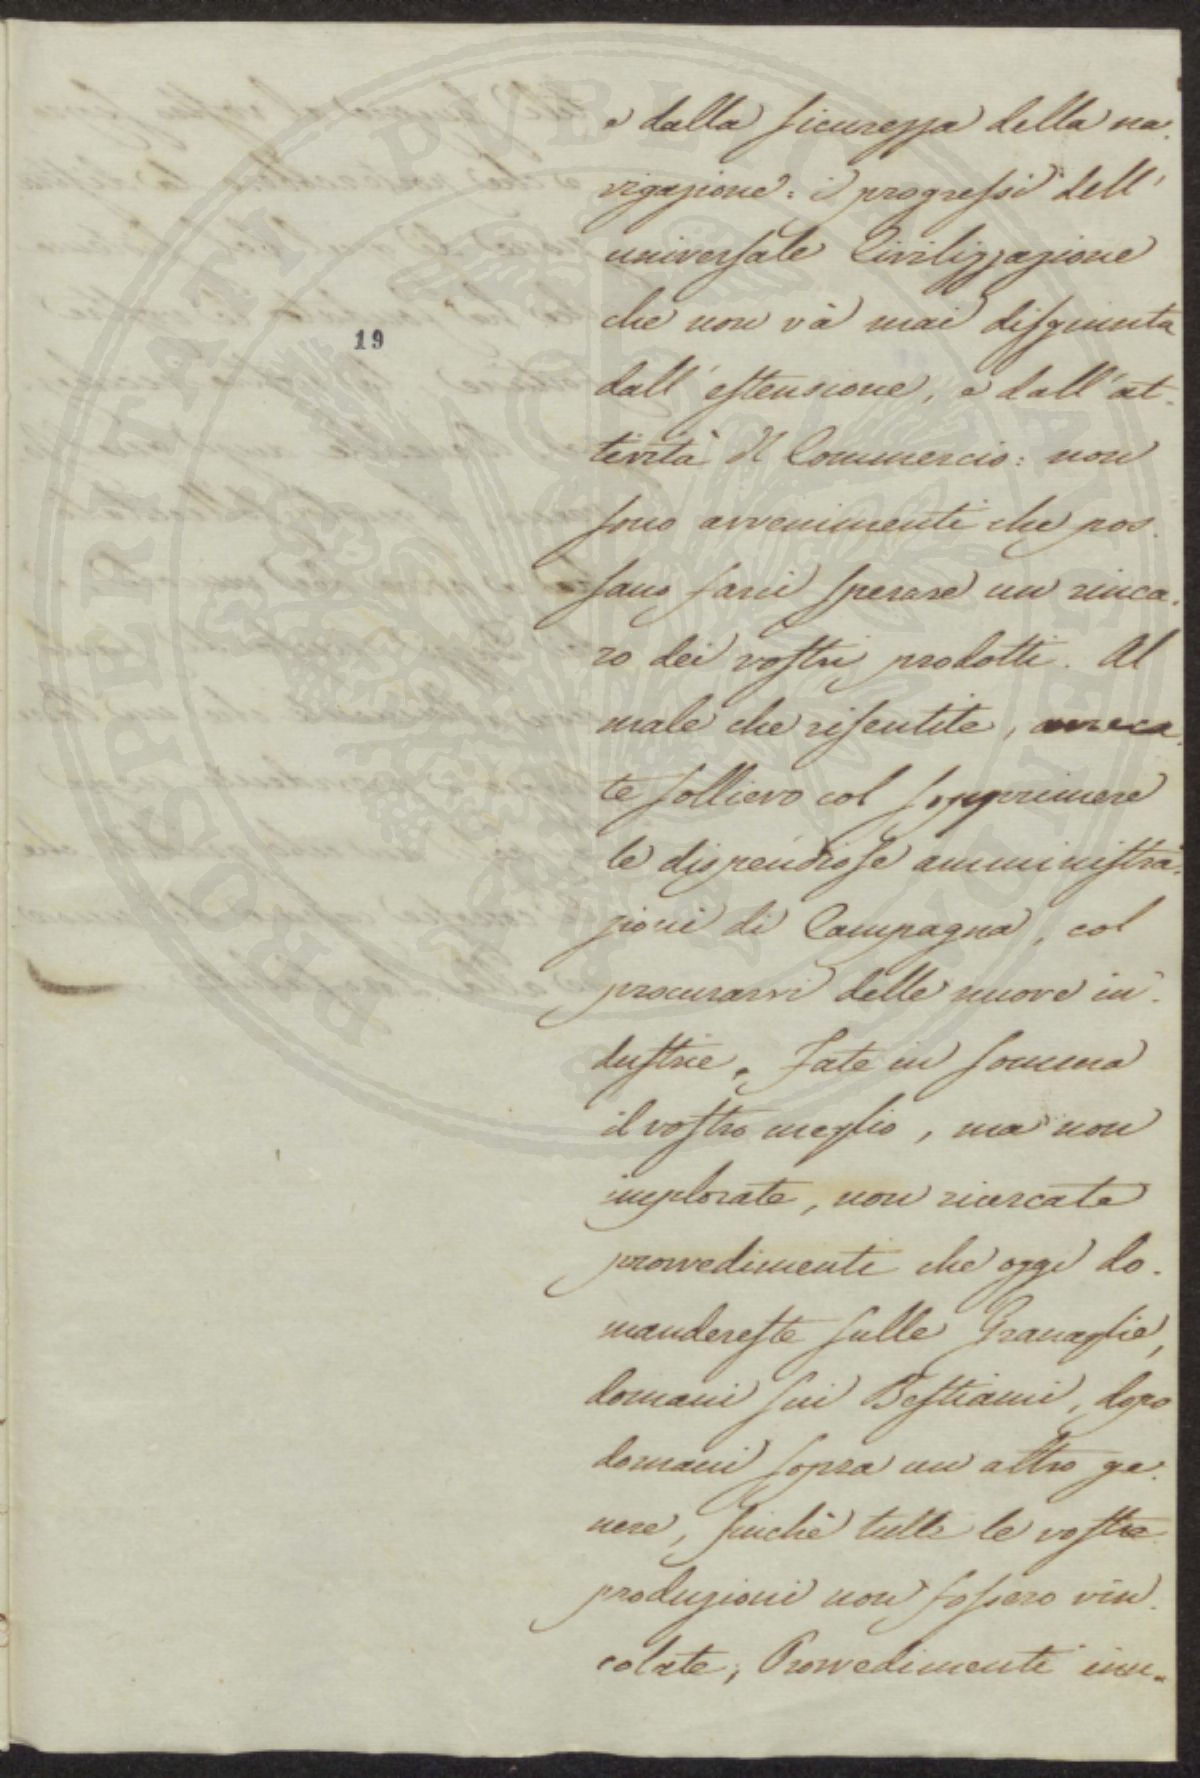 e dalla sicurezza della na.
vigazione: i progressi dell'
universale Civilizzazione
che non và mai disgiunta
19
dall' estensione, e dall' at.
tività del Commercio: non
sono avvenimenti che pos.
sano farvi sperare un rinca.
ro dei vostri prodotti. Al
male che risentite, arreca.
te sollievo col sopprimere
le dispendiose amministra.
zioni di Campagna, col
procurarvi delle nuove in.
dustrie. Fate in somma
il vostro meglio, ma non
implorate, non ricercate
provvedimenti che oggi do.
mandereste sulle Granaglie,
domani sui Bestiami, dopo
domani sopra un altro ge.
nere, finchè tutte le vostre
produzioni non fossero vin.
colate; Provvedimenti inu.
PROSPERITATI PVBLICAE AVGENDAE